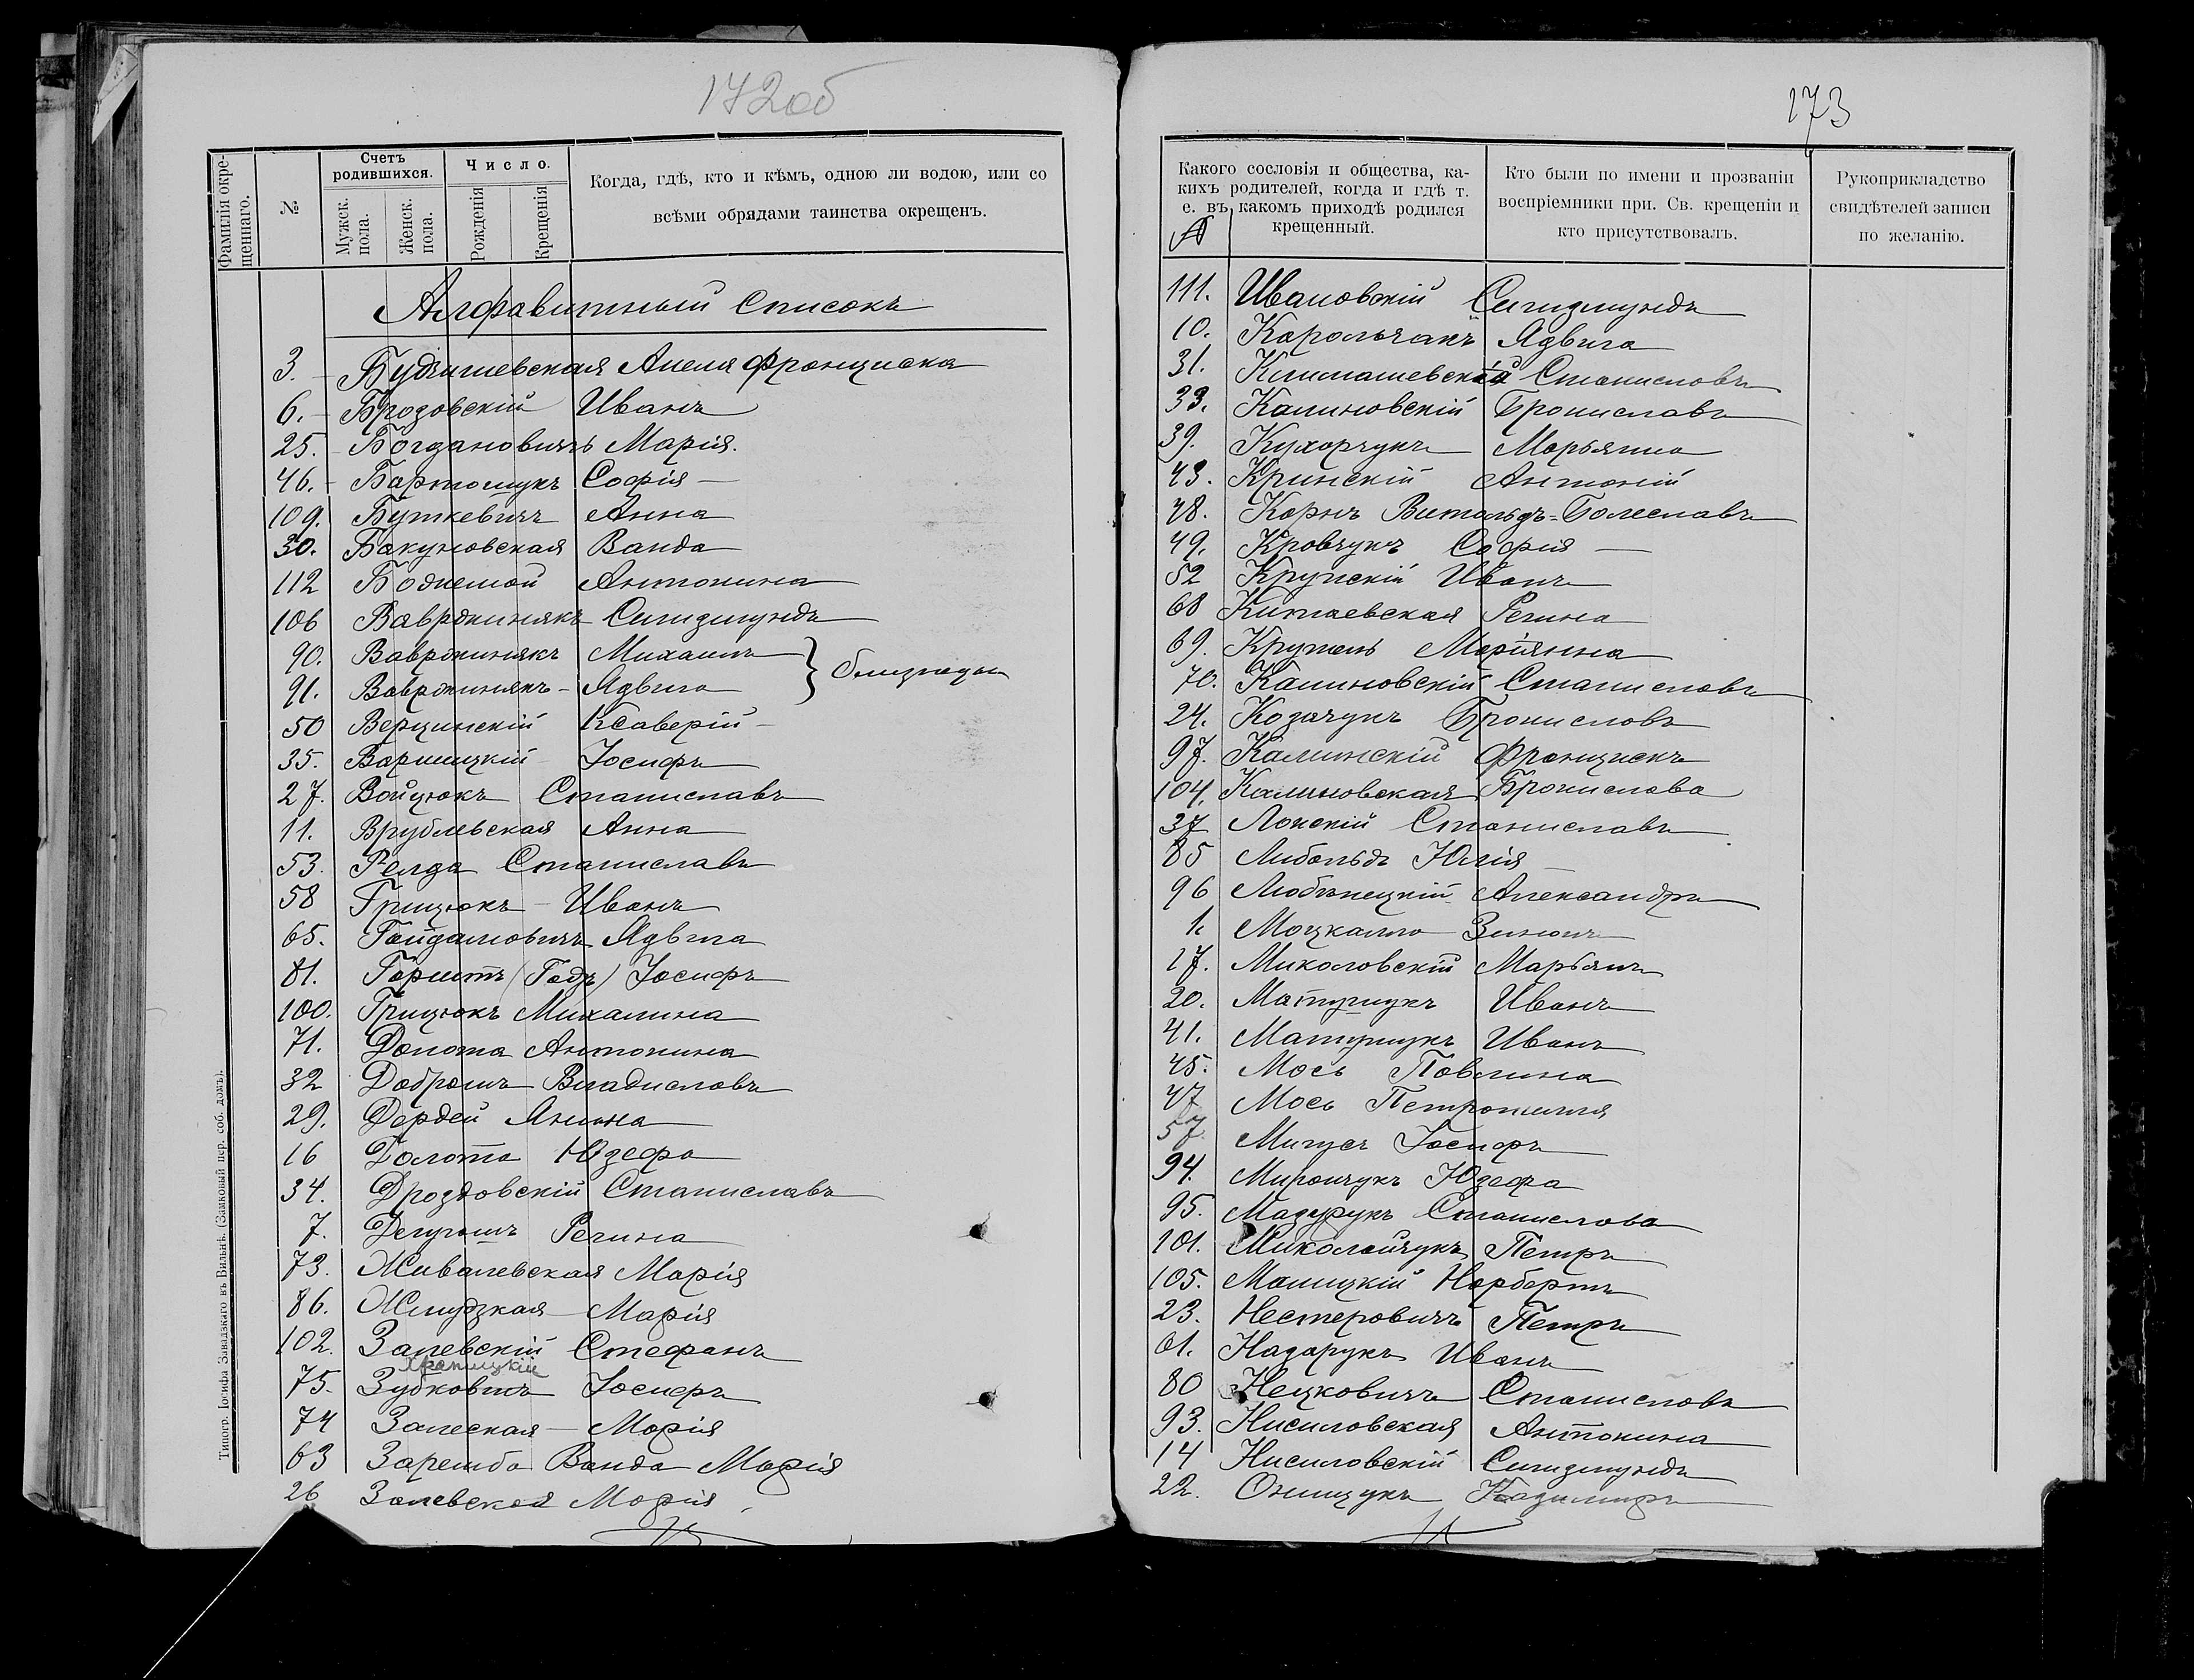 172об
Фамилія окрещеннаго.
№
Счетъ родившихся.
Мужск. пола.
Женск. пола.
Число.
Рожденія
Крещенія
Когда, гдѣ, кто и кѣмъ, одною ли водою, или со
всѣми обрядами таинства окрещенъ.
Алфавитный списокъ
3. Будзишевская Анеля Франциска
6. Бродовскій Иванъ
25. Богдановичъ Марія.
46. Бартошукъ Софія
109. Буткевичъ Анна
30. Бакуновская Ванда
112 Антонина
106 Вавржинякъ Сигизмундъ
90. Вавржинякъ Михаилъ
близнецы
91. Вавржинякъ Ядвига
50 Верцинскій Ксаверій
35. Варшицкій Іосифъ
27. Войцюкъ Станиславъ
11. Врублевская Анна
53. Станиславъ
58 Грицюкъ Иванъ
65. Гайдамовичъ Ядвига
81. Іосифъ
100. Грицюкъ Михалина
71. Долота Антонина
32 Владиславъ
29. Дердей Янина
16 Долота Юзефа
34. Дроздовскій Станиславъ
7. Регина
73. Живалевская Марія
86. Жмудзкая Марія
102. Залевскій Стефанъ
Храпицкій
75. Зубковичъ Іосифъ
74 Залеская Марія
63 Заремба Ванда Марія
26 Залевская Марія
Типогр. Іосифа Завадзкаго въ Вильнѣ. (Замковый пер. соб. домъ).
173
Какого сословія и общества, ка-
кихъ родителей, когда и гдѣ т.
е. въ какомъ приходѣ родился
крещенный.
Кто были по имени и прозваніи
воспріемники при. Св. крещеніи и
кто присутствовалъ.
Рукоприкладство
свидѣтелей записи
по желанію.
111. Ивановскій Сигизмундъ
10. Карольчакъ Ядвига
31. Климашевскій Станиславъ
33. Калиновскій Брониславъ
39. Кухарчукъ Марьянна
43. Кринскій Антоній
48. Корнъ Витольдъ=Болеславъ
49. Кравчукъ Софія
52 Крупскій Иванъ
68 Китаевская Регина
69. Марьянна
70. Калиновскій Станиславъ
24. Козачукъ Брониславъ
97. Калинскій Францискъ
104. Калиновская Бронислава
37 Лонскій Станиславъ
85 Либольдъ Юлія
96 Любѣнецкій Александръ
1. Моцкалло
17. Миколовскій Марьянъ
20. Матушукъ Иванъ
41. Матушукъ Иванъ
45. Мось Павлина
47 Мось Петронелля
57. Іосифъ
94. Мирончукъ Юзефа
95. Мазурукъ Станислава
101. Миколайчукъ Петръ
105. Малицкій Норбертъ
23. Нестеровичъ Петръ
61. Назарукъ Иванъ
80 Нецковичъ Станиславъ
93. Нисиловская Антонина
14 Нисиловскій Сигизмундъ
22. Онищукъ Казимиръ